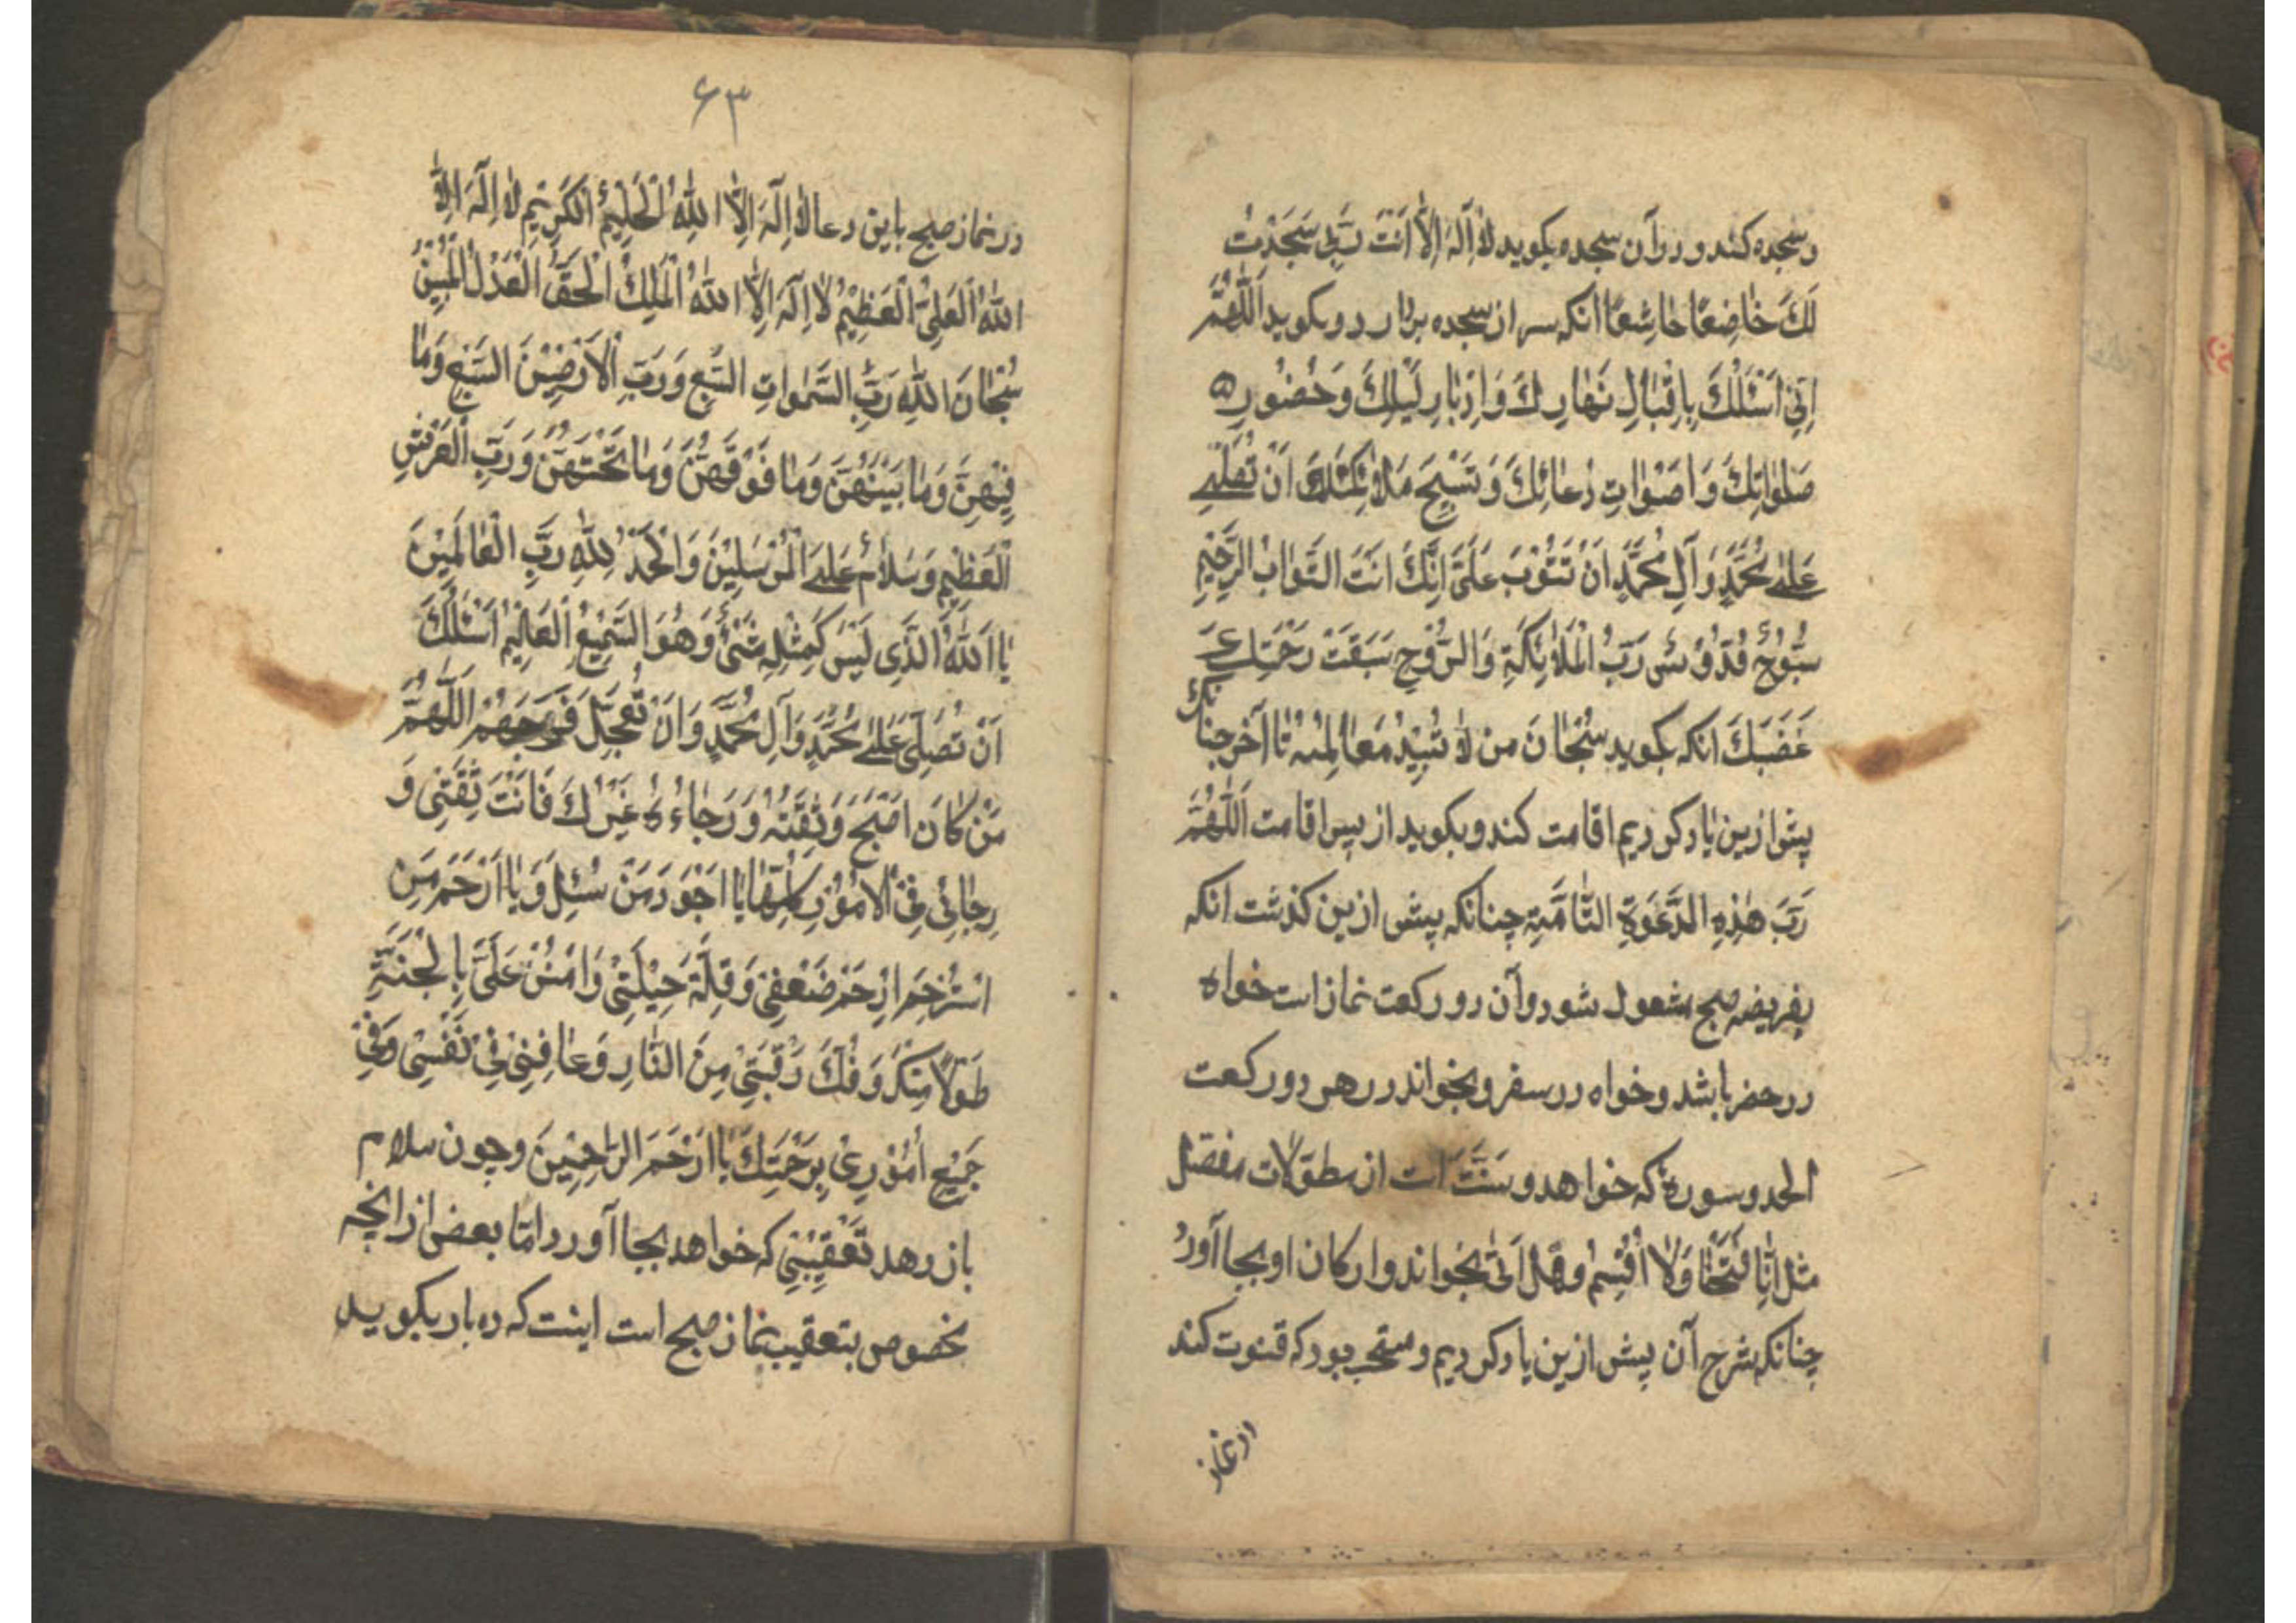 وسجده کند و در آن سجده بکوید لاٰ اِلٓهَ اِلاّٰ اَنْتَ رَبّیِ سَجَدْتُ
لَكَ خٰاضِعًا خٰاشِعًا انکه سر از سجده بردارد وبکوید اَللّٰهُمَّ
اِنّیِ اَسْئَلُكَ بِاِقْبٰالِ نَهٰارِكَ وَاِدْبٰارِ لَیْلِكَ وَحُضُورِ
صَلَوٰاتِكَ وَاَصْوٰاتِ دُعٰائِكَ وَتَسْبِیحِ مَلاٰئِکَتِكَ اَنْ تُصَلّیَِ
عَلیٰ مُحَمَّدٍ وَآلِ مُحَمَّدٍ اَنْ تَتُوْبَ عَلَیَّ اِنَّكَ اَنْتَ التَّوّٰابُ الرَّحْیِمِ
سُبُّوحٌ قُدُّوْسٌ رَبُّ الْمَلاٰئِکَةِ وَالرُّوْحِ سَبَقَتْ رَحْمَتِكَ
غَضَبَكَ انکه بکوید سُبْحٰانَ مَن لاٰ تَبِیْدُ مَعٰالِمُهُ تٰا آخر چنانکه
پیش ازین یاد کردیم اقامت کند وبکوید از پس اقامت اَللّٰهُمَّ
رَبَّ هٰذِهِ الدَّعْوَةِ التّٰامَّةِ چنانکه پیش ازین کذشت انکه
بفریضه صبح مشغول شود وآن دو رکعت نماز است خواه
در حضر باشد وخواه در سفر وبخواند در هر دو رکعت
الحمد وسورهٔ که خواهد وسَنَّتَ است از مطوّلات مفصّل
مثل اِنّٰا فَتَحْنٰا وَلاٰ اُقْسِمُ وهَل اَتیٰ بخواند وارکان او بجا آورد
چنانکه شرح آن پیش ازین یاد کردیم ومستحب بود که قنوت کند
در نماز
۶۳
در نماز صبح باین دعا لاٰ اِلٓهَ اِلاَّ اللّٰهُ الْحَلِیْمُ الْکَرِیْمِ لاٰ اِلٓهَ اِلاَّ
اللّٰهُ الْعَلِیُّ الْعَظِیْمُ لاٰ اِلٓهَ اِلاَّ اللّٰهُ الْمَلِكُ الْحَقُّ الْعَدْلُ الْمُبِیْنُ
سُبْحٰانَ اللّٰهِ رَبِّ السَّمٰوٰاتِ السَّبْعِ وَرَبِّ الْاَرَضِیْنَ السَّبْعِ وَمٰا
فِیْهِنَّ وَمٰا بَیْنَهُنَّ وَمٰا فَوْقَهُنَّ وَمٰا تَحْتَهُنَّ وَرَبِّ الْعَرْشِ
الْعَظْیِمِ وَسَلاٰمٌ عَلیَ الْمُرْسَلِیْنَ وَالْحَمْدُ لِلّٰهِ رَبِّ الْعٰالَمِیْنَ
یٰا اَللّٰهُ الَّذِی لَیْسَ کَمِثْلِهِ شَیْئٌ وَهُوَ السَّمِیْعُ الْعَالِیْمُ اَسْئَلُكَ
اَنْ تُصَلِّیَ عَلیٰ مُحَمَّدٍ وَآلِ مُحَمَّدٍ وَاَنْ تُعَجِّلَ فَرَجَهُمْ اَللّٰهُمَّ
مَنْ کٰانَ اَصْبَحَ وَثِقَتُهُ وَرَجٰاءُهُ غَیْرُكَ فَاَنْتَ ثِقَتْیِ وَ
رِجٰائیِ فِی الْاُمُوْرِ کُلِّهٰا یٰا اَجْوَدَ مَنْ سُئِلَ وَیٰا اَرْحَمَ مَنِ
اسْتُرْحِمَ اِرْحَمْ ضَعْفیِ وَقِلَّةَ حِیْلَتِیْ وَامْنُنْ عَلَیَّ بِالْجَنَّةِ
طَوْلاً مِنْكَ وَفُكَّ رَقَبَتِیْ مِنَ النّٰارِ وَعٰافِنِیْ فِیْ نَفْسِیْ وَفِیْ
جَمِیْعِ اُمُوْرِیْ بِرَحْمَتِكَ یٰا اَرْحَمَ الرّٰاحِمِیْنَ وچون سلام
باز دهد تَعْقِیْبیِ که خواهد بجا آورد امّا بعضی از انچه
مخصوص بتعقیب نماز صبح است اینست که ده بار بکوید